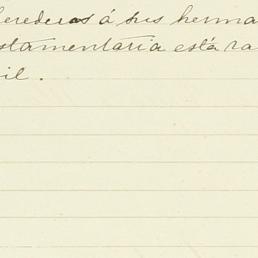 herederos á sus herma
stamentaria está ra
il.